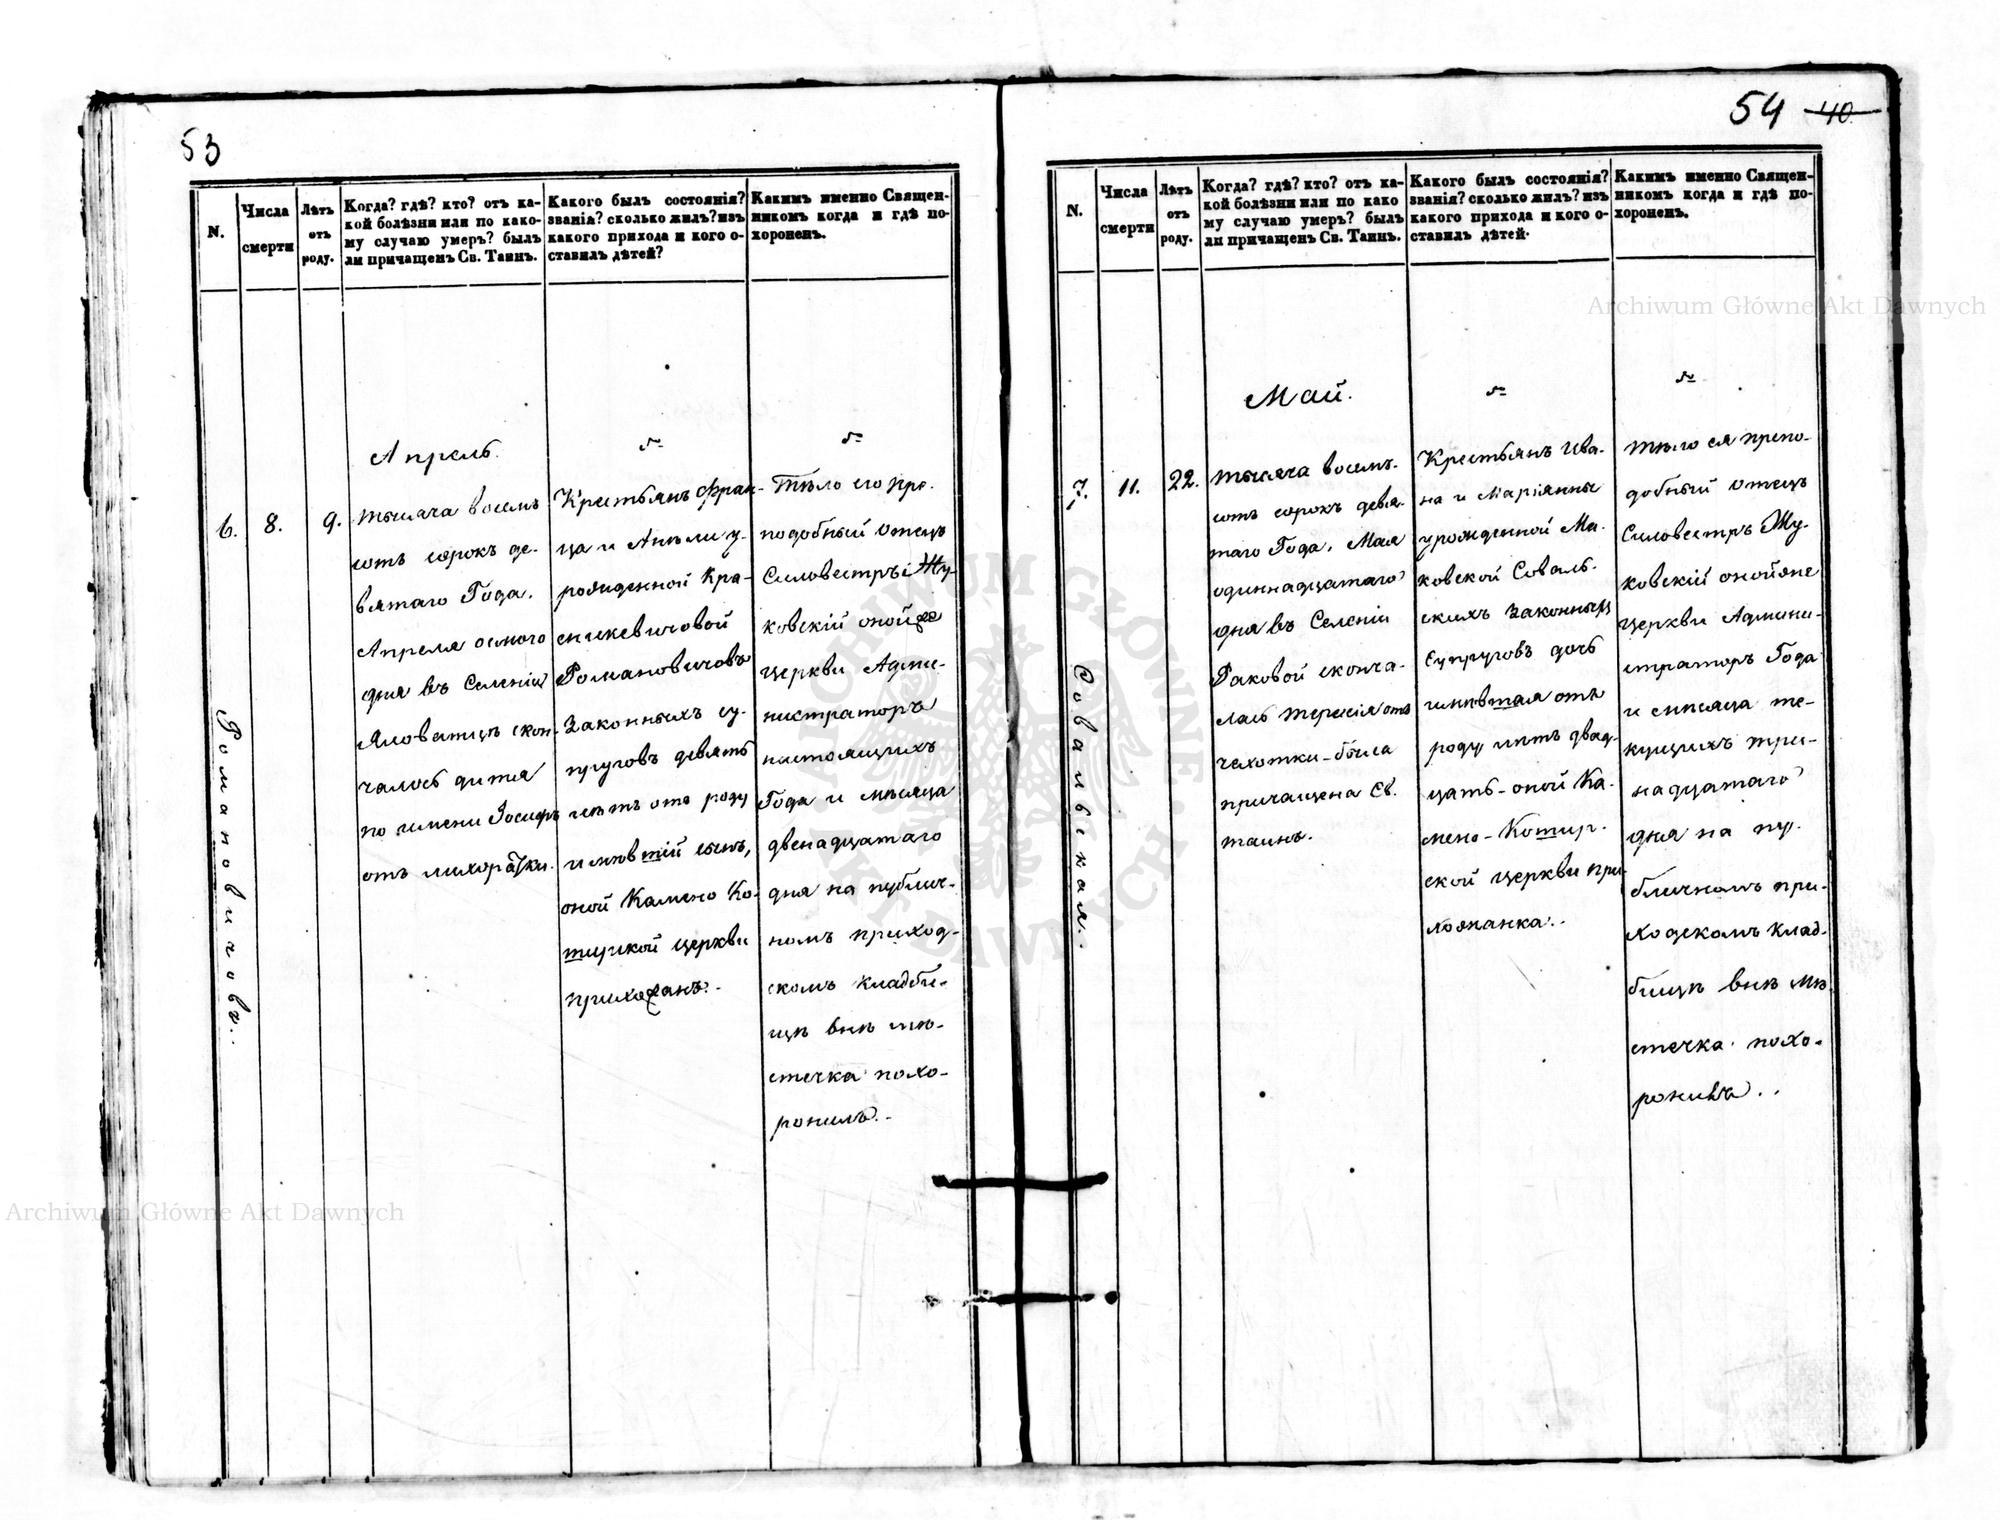 53
N.
Числа
смерти
Лѣтъ
отъ
роду.
Когда? гдѣ? кто? отъ ка-
кой болѣзни или по како-
му случаю умеръ? былъ
ли причащенъ Св. Таинъ.
Какого былъ состоянія?
званія? сколько жилъ? изъ
какого прихода и кого о-
ставилъ дѣтей?
Какимъ именно Священ-
никомъ когда и гдѣ по-
хороненъ.
6.
Романовичовъ.
8.
9.
Апрель.
тысяча восемъ
сотъ сорокъ де-
вятаго Года.
Апреля осмого
дня въ Селеніи
Яловатицѣ скон-
чалось дитя
по имени Іосифъ
отъ лихорадки.
Крестьянъ Фран-
ца и Анели у-
рожденной Кра-
снкевичовой
Романовичовъ
Законныхъ су-
пруговъ девять
лѣтъ отъ роду
имѣвшій сынъ,
оной Камено Ко-
ширской церкви
прихожанъ.-
Тѣло его пре-
подобный Отецъ
Силовестръ Жу-
ковскій оной же
церкви Адми-
нистраторъ
настоящихъ
Года и мѣсяца
двенадцатаго
дня на публич-
номъ приход-
скомъ кладби-
щѣ внѣ мѣ-
стечка похо-
ронилъ.-
54 40
N.
Числа
смерти
Лѣтъ
отъ
роду.
Когда? гдѣ? кто? отъ ка-
кой болѣзни или по како
му случаю умеръ? былъ
ли причащенъ Св. Таинъ.
Какого былъ состоянія?
званія? сколько жилъ? изъ
какого прихода и кого о-
ставилъ дѣтей·
Какимъ именно Священ-
никомъ когда и гдѣ по-
хороненъ.
7.
Совальская.
11.
22.
Май.
тысяча восемъ-
сотъ сорокъ девя-
таго Года, Мая
одиннадцатаго
дня въ Селеніи
Раковой сконча-
лась Тересія отъ
чахотки-была
причащена Св.
таинъ.
Крестьянъ Ива-
на и Маріянны
урожденной Ма-
ковской Соваль-
скихъ Законныхъ
Супруговъ дочь
имѣвшая отъ
роду лѣтъ двад-
цать-оной Ка-
мено-Кошир-
ской церкви при-
хожанка.-
тѣло ея препо-
добный Отецъ
Силовестръ Жу-
ковскій онойже
церкви Админи-
страторъ Года
и мѣсяца те-
кущихъ три-
надцатаго
дня на пу-
бличномъ при-
ходскомъ клад-
бищѣ внѣ мѣ-
стечка похо-
ронилъ..
Archiwum Główne Akt Dawnych
Archiwum Główne Akt Dawnych
ARCHIWUM GŁÓWNE AKT DAWNYCH